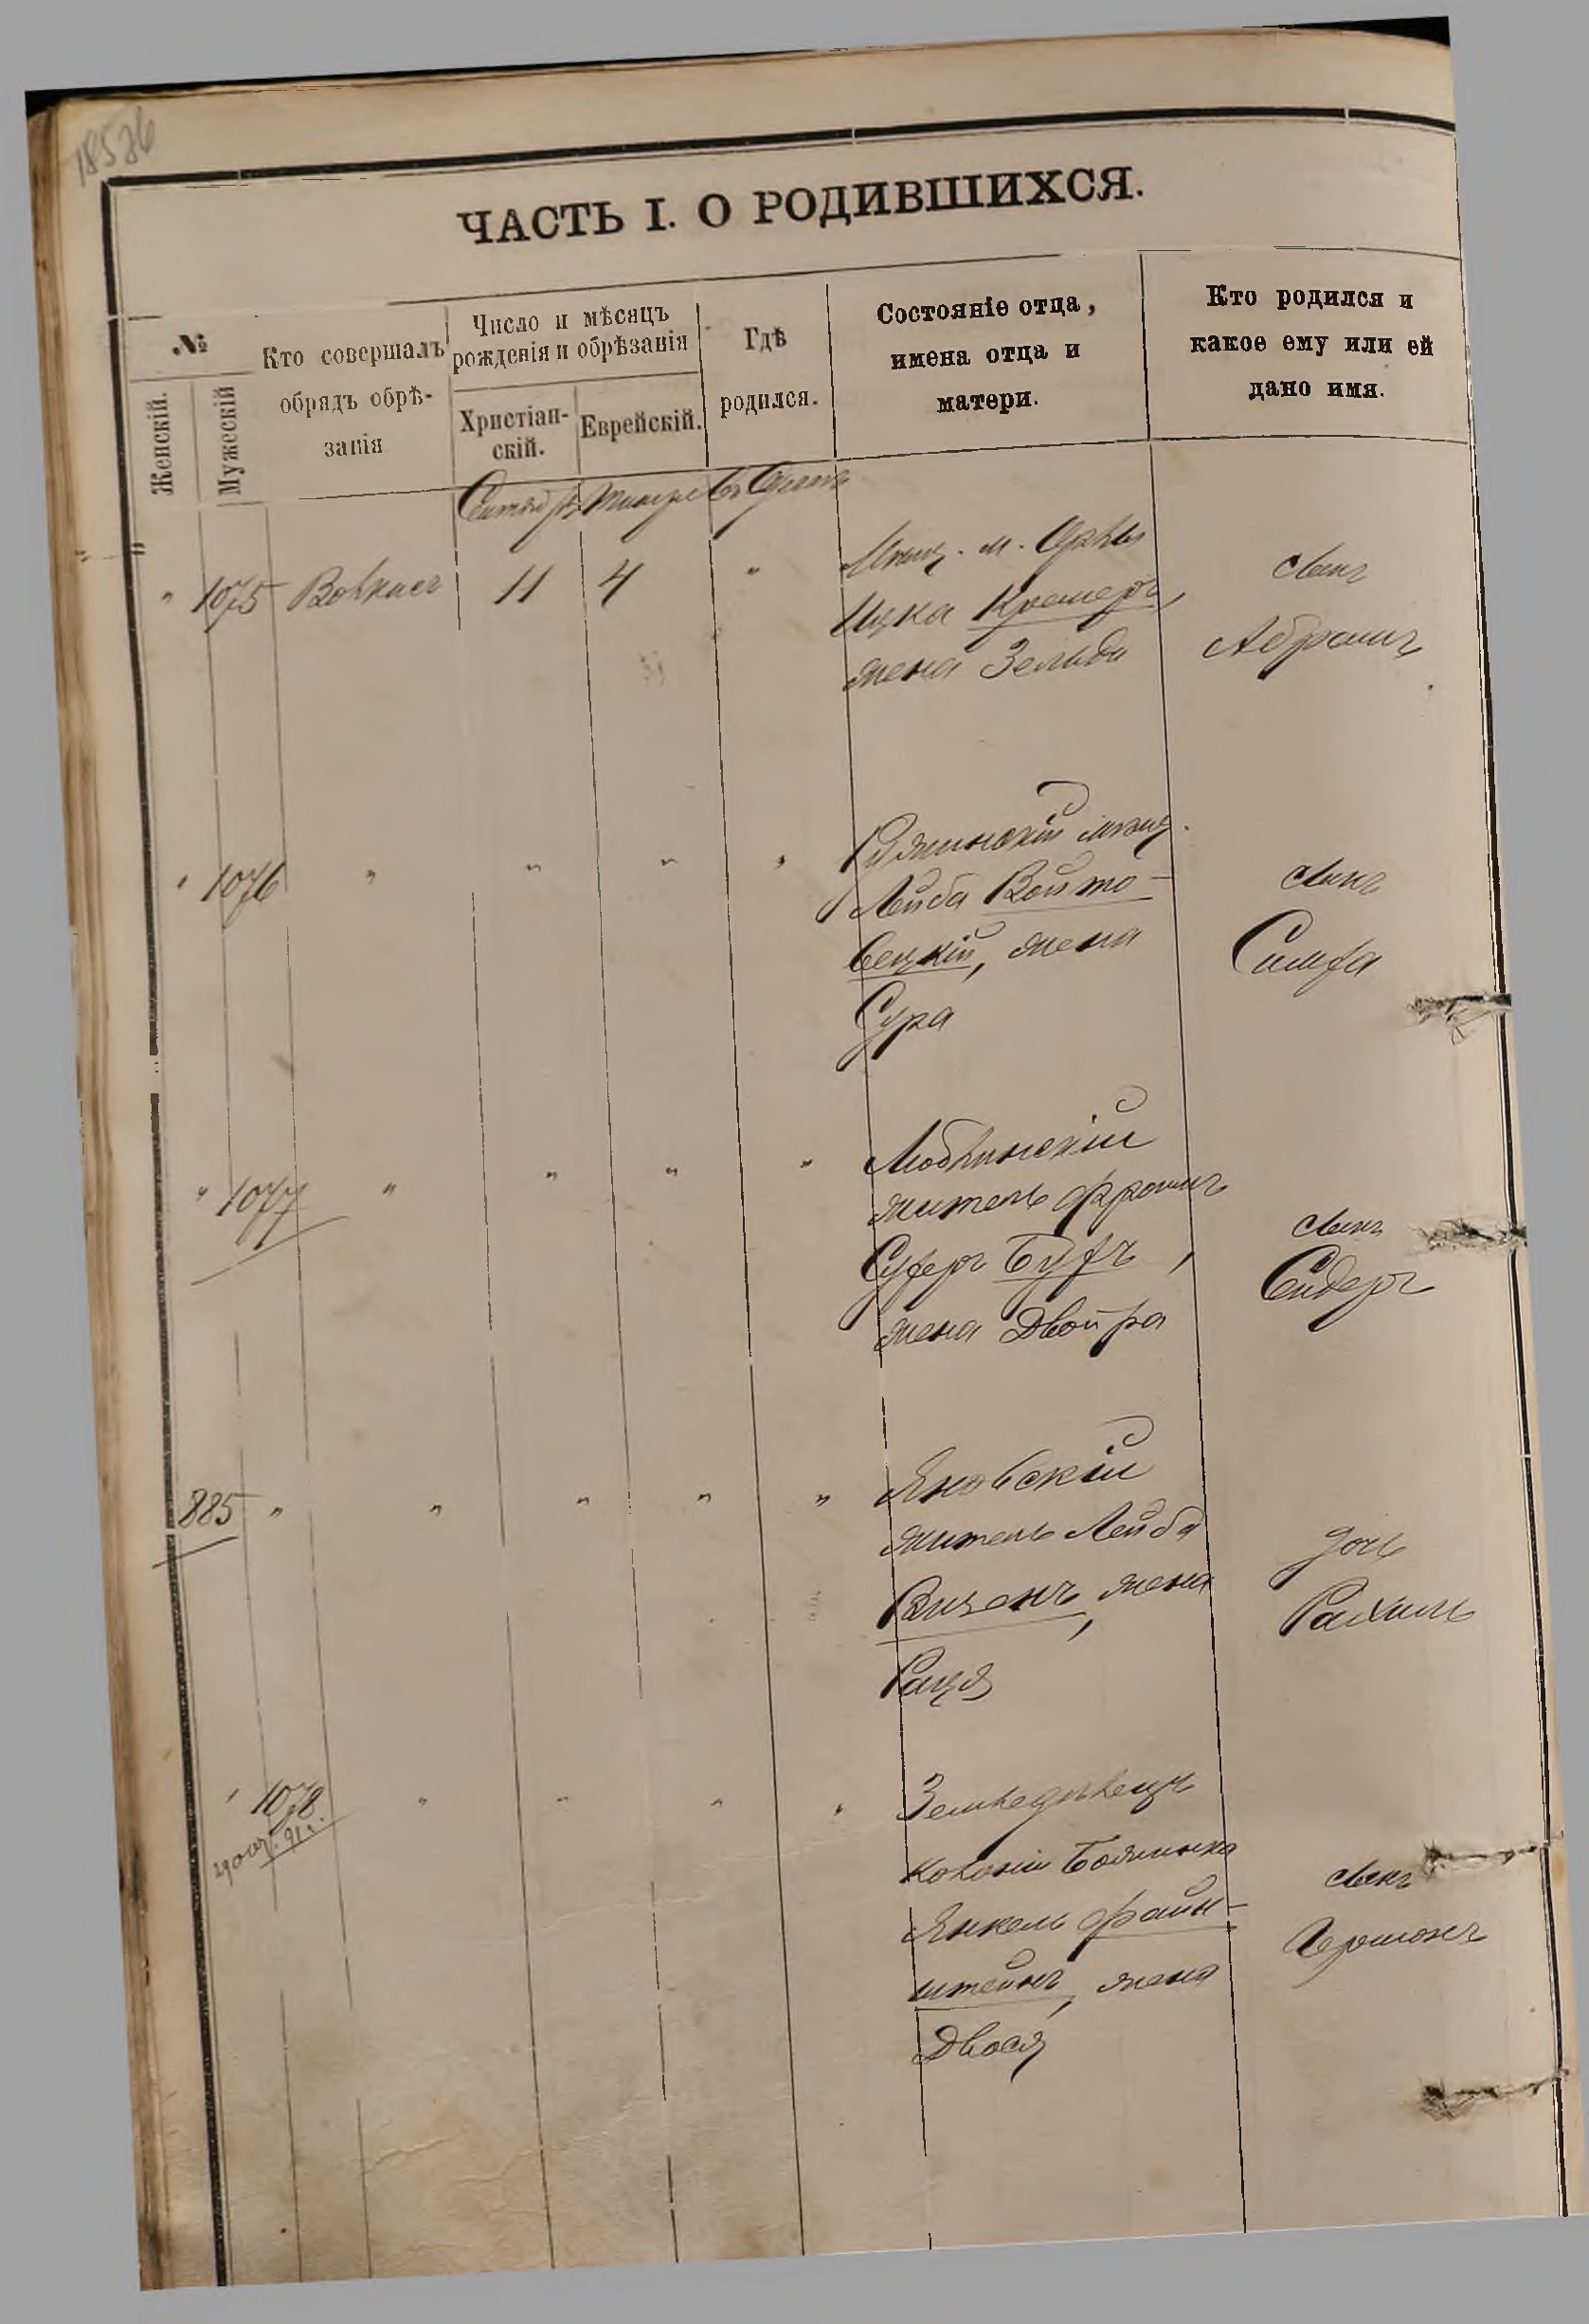 18526
ЧАСТЬ I. О РОДИВШИХСЯ.
№
Женскій.
Мужескій
Кто совершалъ
обрядъ обрѣ-
занія
Число и мѣсяцъ
рожденія и обрѣзанія
Христіан-
скій.
Еврейскій.
Гдѣ
родился.
Состояніе отца,
имена отца и
матери.
Кто родился и
какое ему или ей
дано имя.
Сентяб. Тишри въ Одессѣ
" 1075 11 4 "
Мѣщ. м.
Ицка Кремеръ,
жена Зельда
сынъ
Абрамъ
" 1076 " " " "
мѣщ.
Лейба Войто-
вецкій, жена
Сура
сынъ
Симха
" 1077 " " " "
Люблинскій
житель Фроимъ
Сухеръ Бухъ,
жена Двойра
сынъ
Сидеръ
885 " " " " "
Яновскій
житель Лейба
Визенъ, жена
Рація
дочь
Рахиль
" 1078 " " " "
Земледѣлецъ
колоніи
Янкель Файн-
штейнъ, жена
Двося
сынъ
Гершонъ